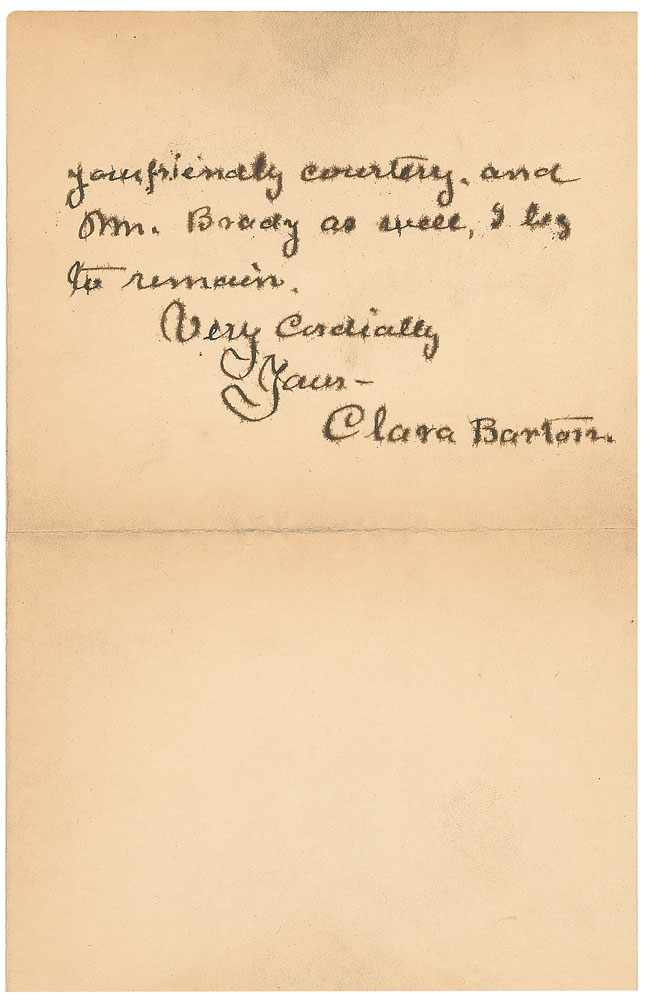 your friendly courtesy, and
Mr. Brady as well, I beg
to remain.
Very Cordially
Yours -
Clara Barton.